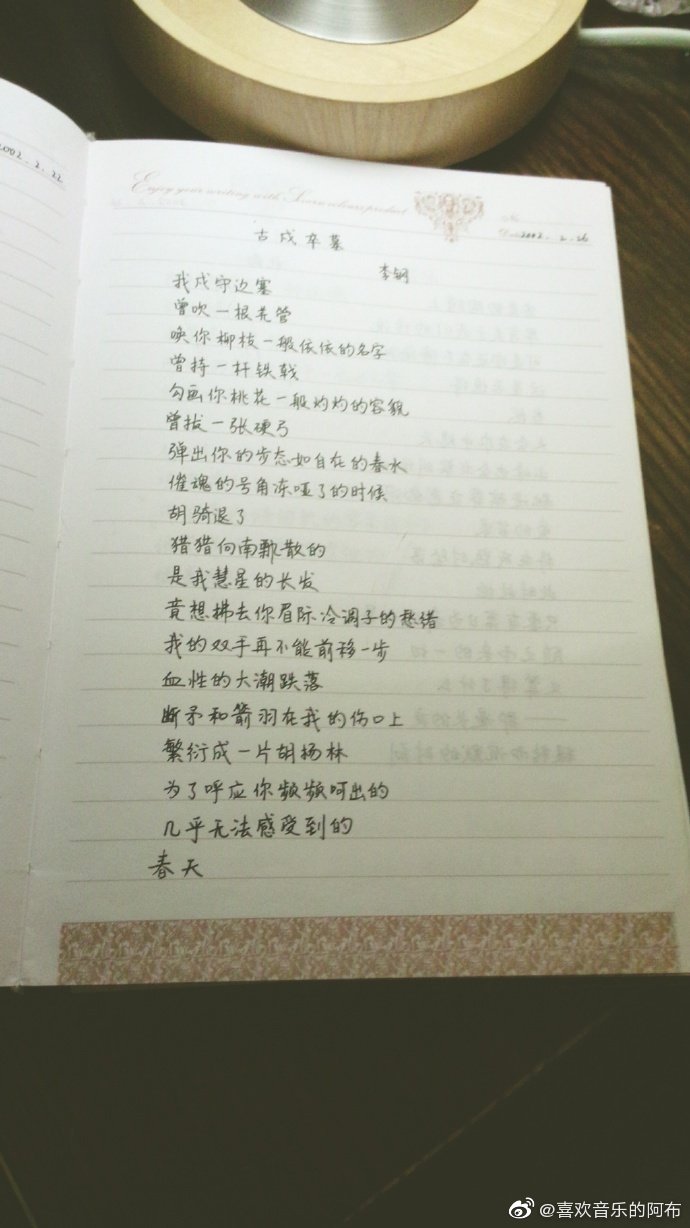 2002.2.22
Enjoy your writing with
No.
Date 2002.2.26
古戍卒墓
李钢
我戍守边塞
曾吹一根羌管
唤你柳枝一般依依的名字
曾持一杆铁戟
勾画你桃花一般灼灼的容貌
曾拔一张硬弓
弹出你的步态如自在的春水
催魂的号角冻哑了的时候
胡骑退了
猎猎向南飘散的
是我慧星的长发
竟想拂去你眉际冷调子的愁绪
我的双手再不能前移一步
血性的大潮跌落
断矛和箭羽在我的伤口上
繁衍成一片胡杨林
为了呼应你频频呵出的
几乎无法感受到的
春天
@喜欢音乐的阿布